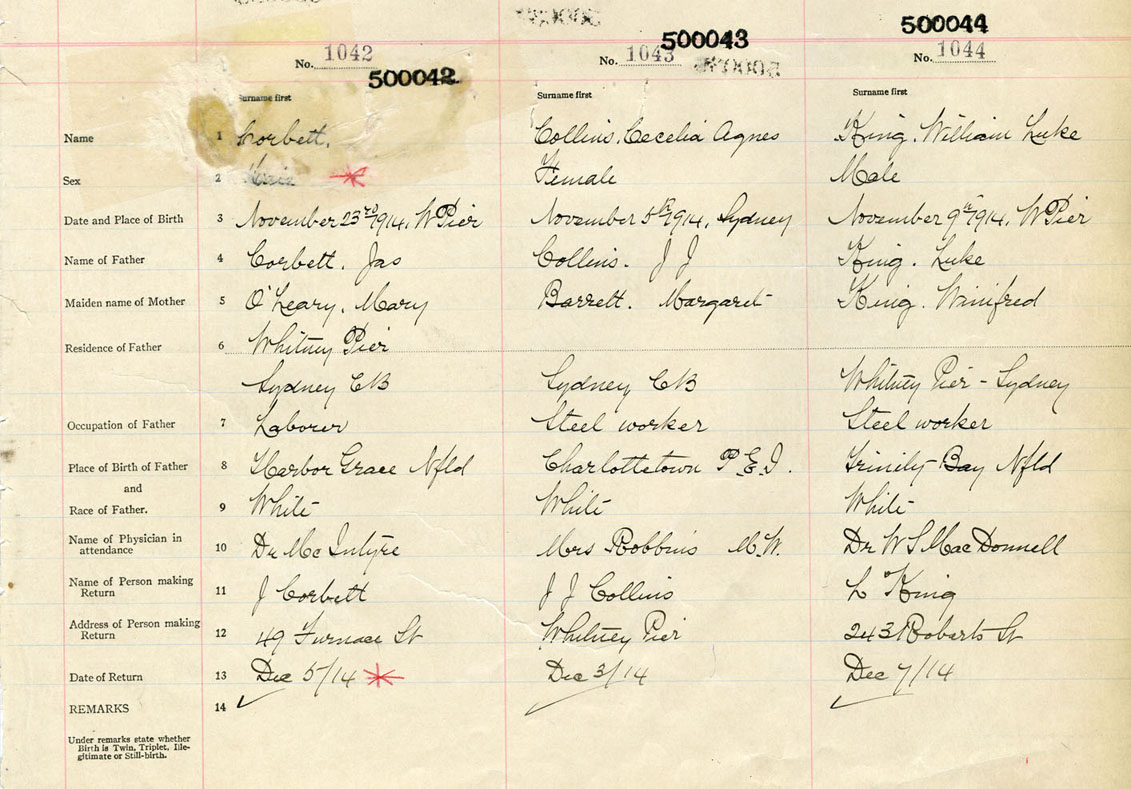 No. 1042
500042
No. 1043
500043
No. 1044
500044
Surname first
Surname first
Surname first
Name 1 Corbett, Collins, Cecelia Agnes King, William Luke
Sex 2 Female Male
Date and Place of Birth 3 November 23rd 1914, W Pier November 5th 1914, Sydney November 9th 1914, W Pier
Name of Father 4 Corbett. Jas Collins. J J King. Luke
Maiden name of Mother 5 O'Leary, Mary Barrett. Margaret King. Winifred
Residence of Father 6 Whitney Pier
Sydney CB Sydney CB Whitney Pier - Sydney
Occupation of Father 7 Laborer Steel worker Steel worker
Place of Birth of Father 8 Harbor Grace Nfld Charlottetown P.E.I. Trinity Bay Nfld
and
Race of Father. 9 White White White
Name of Physician in
attendance 10 Dr McIntyre Mrs Robbins M.W. Dr W S MacDonnell
Name of Person making
Return 11 J Corbett J J Collins L King
Address of Person making
Return 12 49 Furnace St Whitney Pier 243 Roberts St
Date of Return 13 Dec 5/14 Dec 3/14 Dec 7/14
REMARKS 14
Under remarks state whether
Birth is Twin, Triplet, Ille-
gitimate or Still-birth.